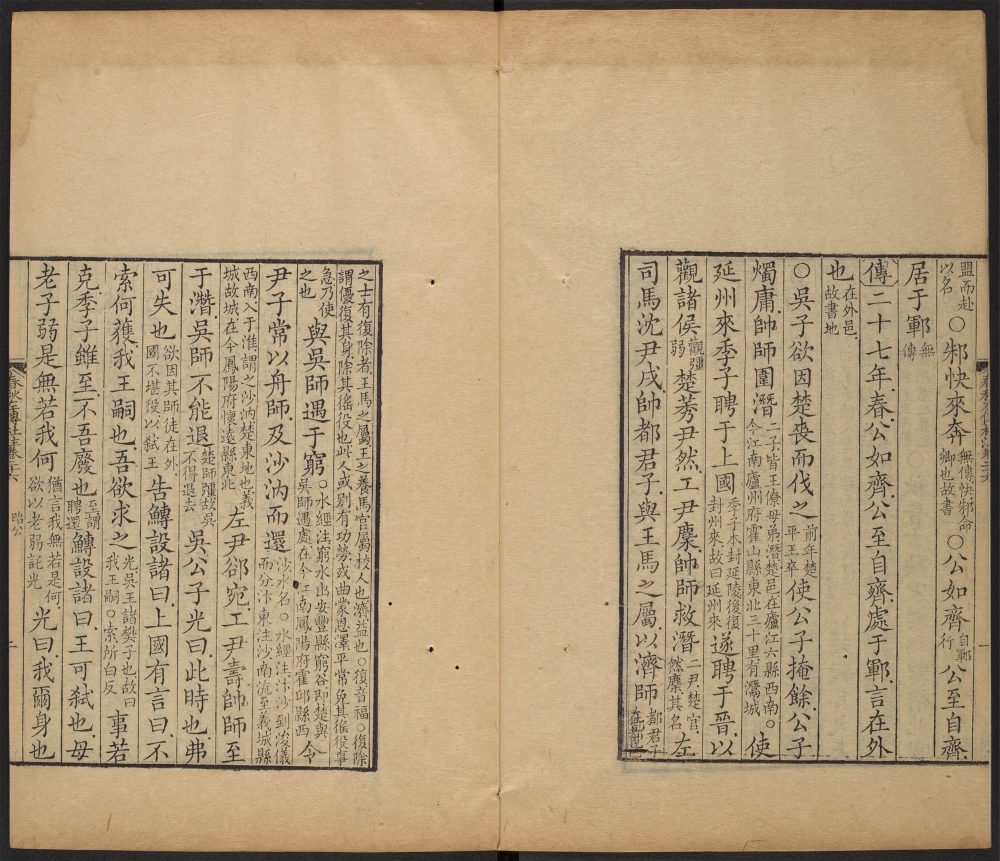 盟而赴以名○邾快來奔無傳快邾命卿也故書○公如齊自鄆行公至自齊
居于鄆無傳
傳二十七年春公如齊公至自齊處于鄆言在外
也在外邑故書地
○吳子欲因楚喪而伐之前年楚平王卒使公子掩餘公子
燭庸帥師圍潛二子皆王僚母弟潛楚邑在廬江六縣西南○今江南廬州府霍山縣東北三十里有灊城使
延州來季子聘于上國季子本封延陵後復封州來故曰延州來遂聘于晉以
觀諸侯觀彊弱楚莠尹然工尹麇帥師救潛二尹楚官然麇其名左
司馬沈尹戌帥都君子與王馬之屬以濟師都君子在都邑
之士有復除者王馬之屬王之養馬官屬校人也濟益也○復音福○復除謂優復其身除其徭役也此人或別有功勞或曲蒙恩澤平常免其徭役事急乃使
之也與吳師遇于窮○水經注窮水出安豐縣窮谷即楚與吳師遇處在今江南鳳陽府霍邱縣西令
尹子常以舟師及沙汭而還沙水名○水經注汴沙到浚儀而分汴東注沙南流至義城縣
西南入于淮謂之沙汭楚東地也義城故城在今鳳陽府懷遠縣東北左尹郤宛工尹壽帥師至
于潛吳師不能退楚師彊故吳不得退去吳公子光曰此時也弗
可失也欲因其師徒在外國不堪役以弒王告鱄設諸曰上國有言曰不
索何獲我王嗣也吾欲求之光吳王諸樊子也故曰我王嗣○索所白反事若
克季子雖至不吾廢也至謂聘還鱄設諸曰王可弒也母
老子弱是無若我何猶言我無若是何欲以老弱託光光曰我爾身也
春秋左傳杜注卷二十六 昭公 二